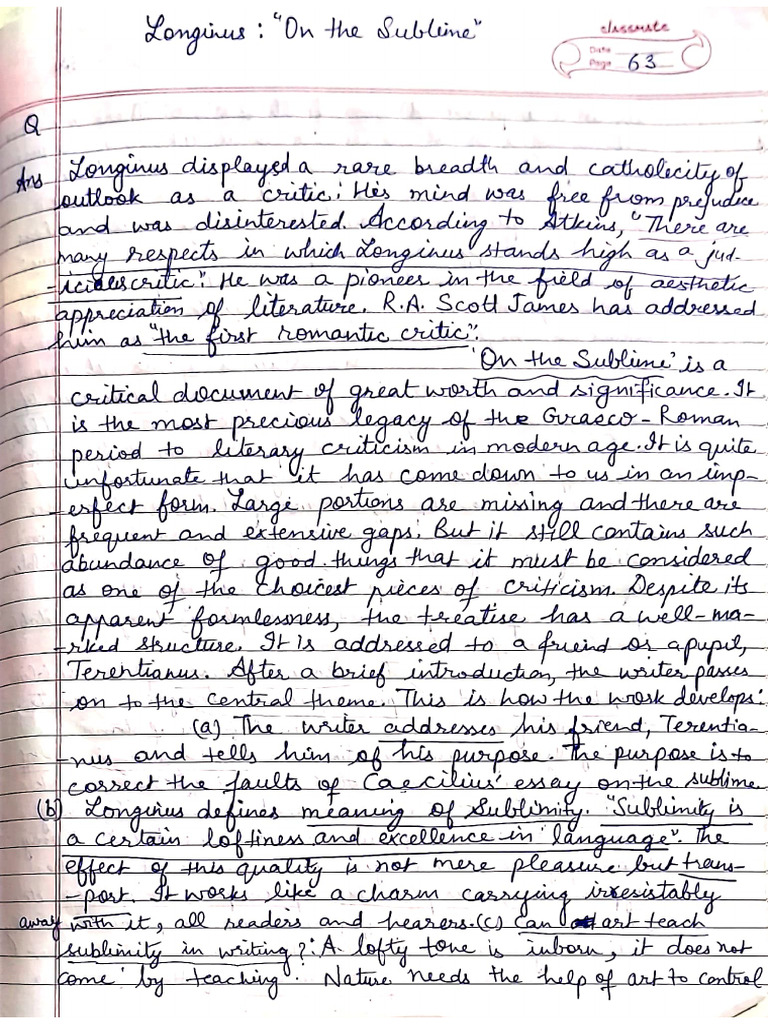 Longinus : "On the Sublime"
classmate
Date
Page 63
Q
Ans Longinus displayed a rare breadth and catholecity of
outlook as a critic. His mind was free from prejudice
and was disinterested. According to Atkins, "There are
many respects in which Longinus stands high as a jud-
-icious critic". He was a pioneer in the field of aesthetic
appreciation of literature. R.A. Scott James has addressed
him as "the first romantic critic".
'On the Sublime' is a
critical document of great worth and significance. It
is the most precious legacy of the Graeco-Roman
period to literary criticism in modern age. It is quite
unfortunate that it has come down to us in an imp-
-erfect form. Large portions are missing and there are
frequent and extensive gaps. But it still contains such
abundance of good things that it must be considered
as one of the choicest pieces of criticism. Despite its
apparent formlessness, the treatise has a well-ma-
-rked structure. It is addressed to a friend or a pupil,
Terentianus. After a brief introduction, the writer passes
on to the central theme. This is how the work develops:
(a) The writer addresses his friend, Terentia-
-nus and tells him of his purpose. The purpose is to
correct the faults of Caecilius' essay on the sublime.
(b) Longinus defines meaning of Sublimity. "Sublimity is
a certain loftiness and excellence in language". The
effect of this quality is not mere pleasure but trans-
-port. It works like a charm carrying irresistably
away with it, all readers and hearers. (c) Can art teach
sublimity in writing?: A lofty tone is inborn, it does not
come by teaching. Nature needs the help of art to control